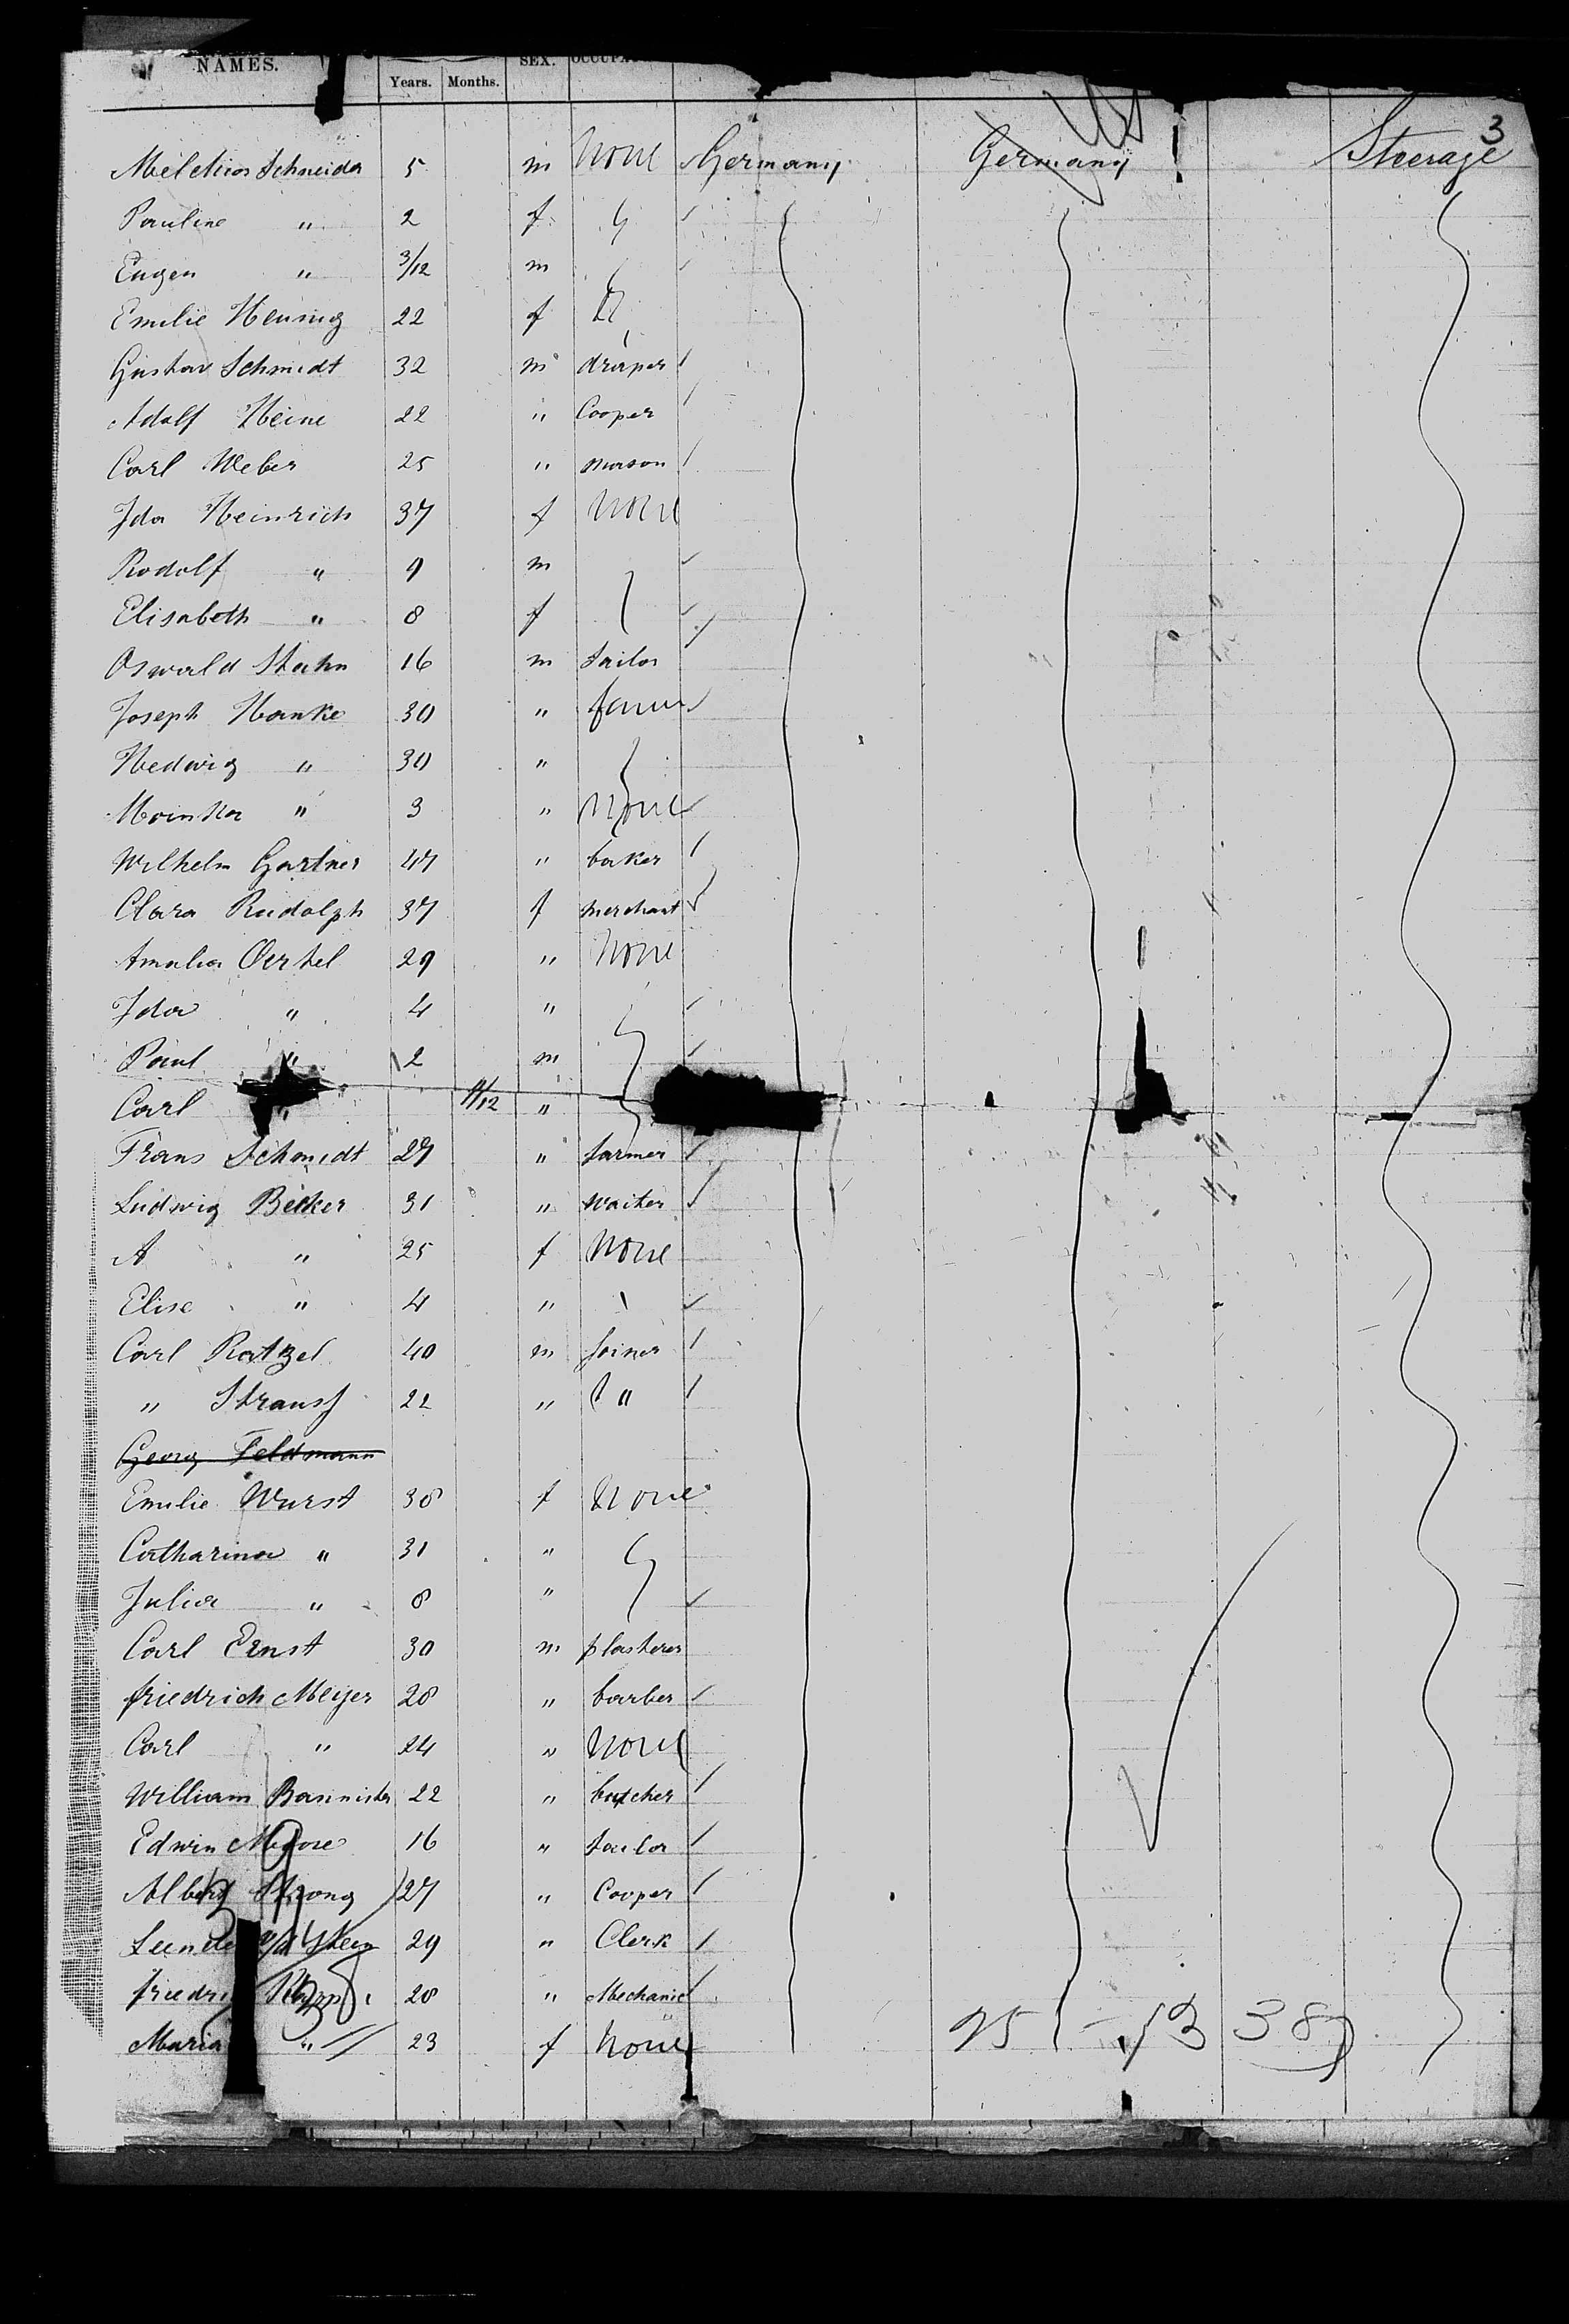 NAMES. Years. Months. SEX.
3
Melchior Schneider 5 m None Germany Germany Steerage
Pauline " 2 f
Eugen " 3/12 m
Emilie Hennig 22 f
Gustav Schmidt 32 m draper
Adolf Heine 22 " Cooper
Carl Weber 25 " mason
Ida Heinrich 37 f None
Rudolf " 9 m
Elisabeth " 8 f
Oswald Stahn 16 m tailor
Joseph Hanke 30 " farmer
Hedwig " 30 "
" 3 " None
Wilhelm Gartner 47 " baker
Clara Rudolph 37 f merchant
Amalia Oertel 29 " None
Ida " 4 "
Paul " 2 m
Carl " 11/12 "
Frans Schmidt 27 " farmer
Ludwig Becker 31 " waiter
A " 25 f None
Elise " 4 "
Carl Ratzel 40 m joiner
" Strauss 22 " "
Georg Feldmann
Emilie Wurst 38 f None
Catharina " 31 "
Julia " 8 "
Carl Ernst 30 m plasterer
friedrich Meyer 28 " barber
Carl " 24 " None
William Bannister 22 " butcher
Edwin Moore 16 " tailor
Albert Strong 27 " Cooper
29 " Clerk
28 " Mechanic
Maria " 23 f None
25 13 38